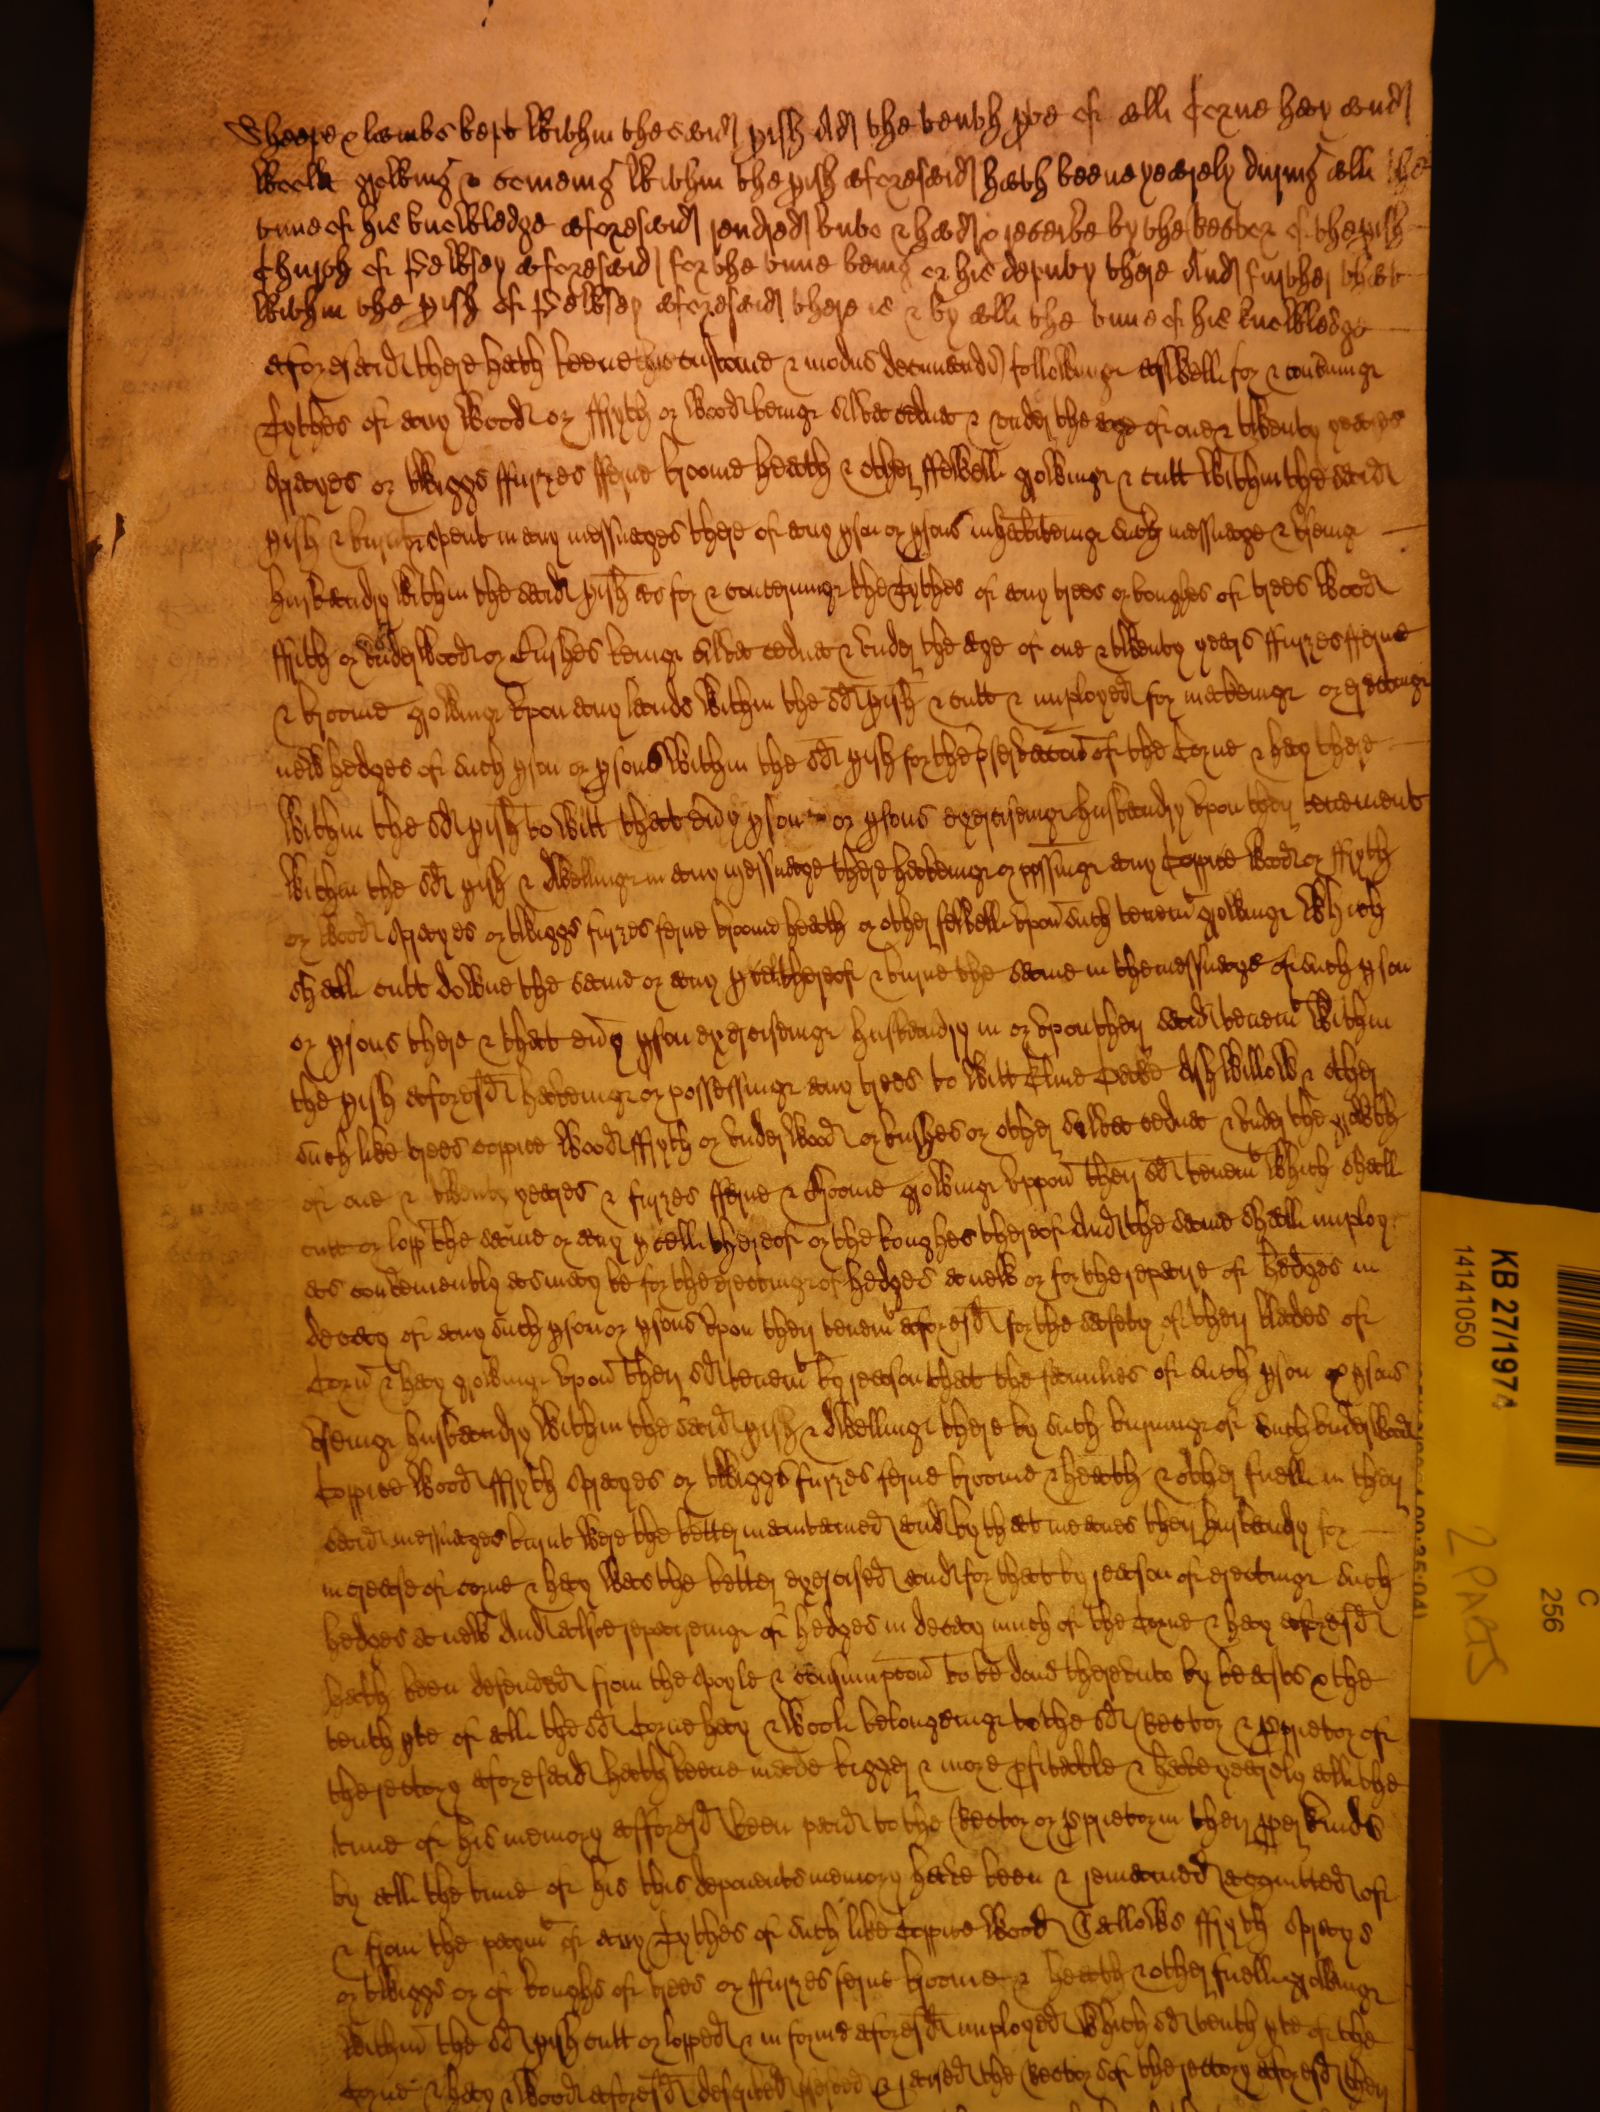 Sheepe & lambs kept within the said pish And the tenth pte of all Corne hay and
Wooll growing & comeing within the pish aforesaid hath beene yearely during all the
time of his knowledge aforesaid rendred unto & had & receive by the Rector of the pish
Church of Pewsey aforesaid for the time being or his deputy there And further that
within the pish of Pewsey aforesaid there is & by all the time of his knowledge
aforesaid there hath beene this custome & modus decimandi followinge aswell for & concerninge
Tythes of any wood or ffryth or wood beinge silva cedua & under the age of one & twenty yeares
sprayes or twiggs ffurzes fferne broome heath & other ffewell growinge & cutt within the said
pish & burnt & spent in any messuages there of any pson or psons inhabiteinge such messuage & useinge
husbandry within the said pish as for & concerninge the Tythes of any trees or boughes of trees wood
ffrith or underwood or Bushes beinge silva cedua & under the age of one & twenty years ffurzes fferne
& broome growinge upon any lands within the sd pish & cutt & imployed for makeinge or erectinge
new hedges of such pson or psons within the sd pish for the pservacon of the Corne & hay there
within the sd pish to witt that evy pson or psons exerciseinge husbandry upon their tenement
within the sd pish & dwellinge in any messuage there haveinge or possinge any Coppice wood or ffryth
or wood sprayes or twiggs furzes ferne broome heath or other fewell upon such tenemt growinge which
shall cutt downe the same or any pte thereof & burne the same in the messuage of such pson
or psons there & that evy pson exerciseinge husbandry in or upon their said tenemt within
the pish aforesd haveinge or possessinge any trees to witt Elme Oake Ash Willow & other
such like trees coppice wood ffryth or underwood or bushes or other silva cedua & under the growth
of one & twenty yeares & furzes fferne & Broome growinge uppon their sd tenemt which shall
cutt or lopp the same or any pcell thereof or the boughes thereof And the same shall imploy
as conveniently as may be for the erectinge of hedges anew or for the repaire of hedges in
decay of any such pson or psons upon their tenemt aforesd for the safety of their blades of
Corne & hay growinge upon their sd tenemt by reason that the families of such pson or psons
useinge husbandry within the said pish & dwellinge there by such burninge of such underwood
Coppice wood ffryth sprayes or twiggs furzes ferne broome & heath & other fuell in their
said messuages burnt were the better maintained and by that meanes their husbandry for
increase of corne & hay was the better exercised and for that by reason of erectinge such
hedges anew And alsoe repaireinge of hedges in decay much of the Corne & hay aforesd
hath been defended from the spoyle & consumpcon to be done thereunto by beasts & the
tenth pte of all the sd Corne hay & wooll belongeinge to the sd Rector & Pprietor of
the rectory aforesaid hath beene made bigger & more pfitable & have yearely all the
time of his memory afforesd been paid to the Rector or Pprietor in their pper kinds
by all the time of his this deponents memory have been & remained acquitted of
& from the paymt of any Tythes of such like Coppice wood Sallows ffryth sprays
or twiggs or of boughs of trees or ffurzes ferne broome & heath & other fuell growinge
within the sd pish cutt or lopped & in forme aforesd imployed which sd tenth pte of the
Corne & hay & wood aforesd & the Rectors of the rectory aforesd their
KB 27/1974
1414050
C
256
2 PARTS